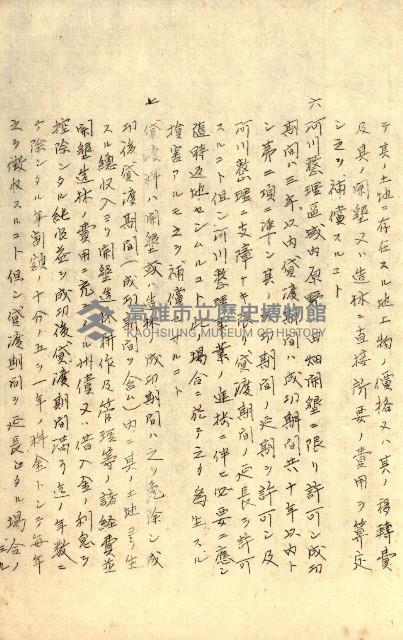 テ其ノ土地ニ存在スル地上物ノ價格又ハ其ノ移轉費
及其ノ開墾又ハ造林ニ直接所要ノ費用ヲ算定
シ之ヲ補償スルコト
六 河川整理區域內原野ノ田畑開墾ニ限リ許可シ成功
期間ハ三年以內貸渡期間ハ成功期間共十年以內ト
シ第二項ニ準シ其ノ成功期間ノ延期ヲ許可シ及
河川整理ニ支障ナキ限リ貸渡期間ノ延長ヲ許可
スルコト但シ河川整理事業ノ進捗ニ伴ヒ必要ニ應シ
隨時返地セシムルコト此ノ場合ニ於テ之カ爲生スル
損害アルモ之ヲ補償セサルコト
七 貸渡料ハ開墾或ハ造林ノ成功期間ハ之ヲ免除シ成
功後貸渡期間(成功期間ヲ含ム)內ニ其ノ土地ヨリ生
スル總收入ヨリ開墾造林耕作及管理等ノ諸經費並
開墾造林ノ費用ニ充テタル補償又ハ借入金ノ利息ヲ
控除シタル純收益ヲ成功後貸渡期間滿了迄ノ年數ニ
テ除シタル年割額ノ十分ノ五ヲ一年ノ料金トシテ每年
之ヲ徵收スルコト但シ貸渡期間ヲ延長シタル場合ノ
高雄市立歷史博物館
KAOHSIUNG MUSEUM OF HISTORY